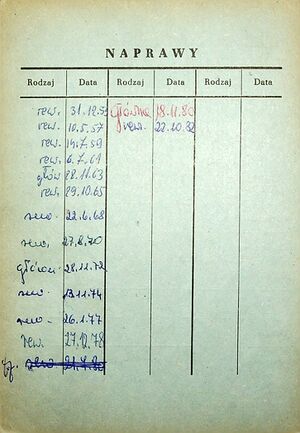 NAPRAWY
Rodzaj Data Rodzaj Data Rodzaj Data
rew. 31.12.5 główna 18.11.80
rew. 10.5.57 rew. 22.10.82
rew. 14.7.59
rew. 6.7.61
głów 28.11.63
rew. 29.10.65
22.6.68
27.8.70
główna 28.11.72
13.11.74
26.1.77
rew. 27.12.78